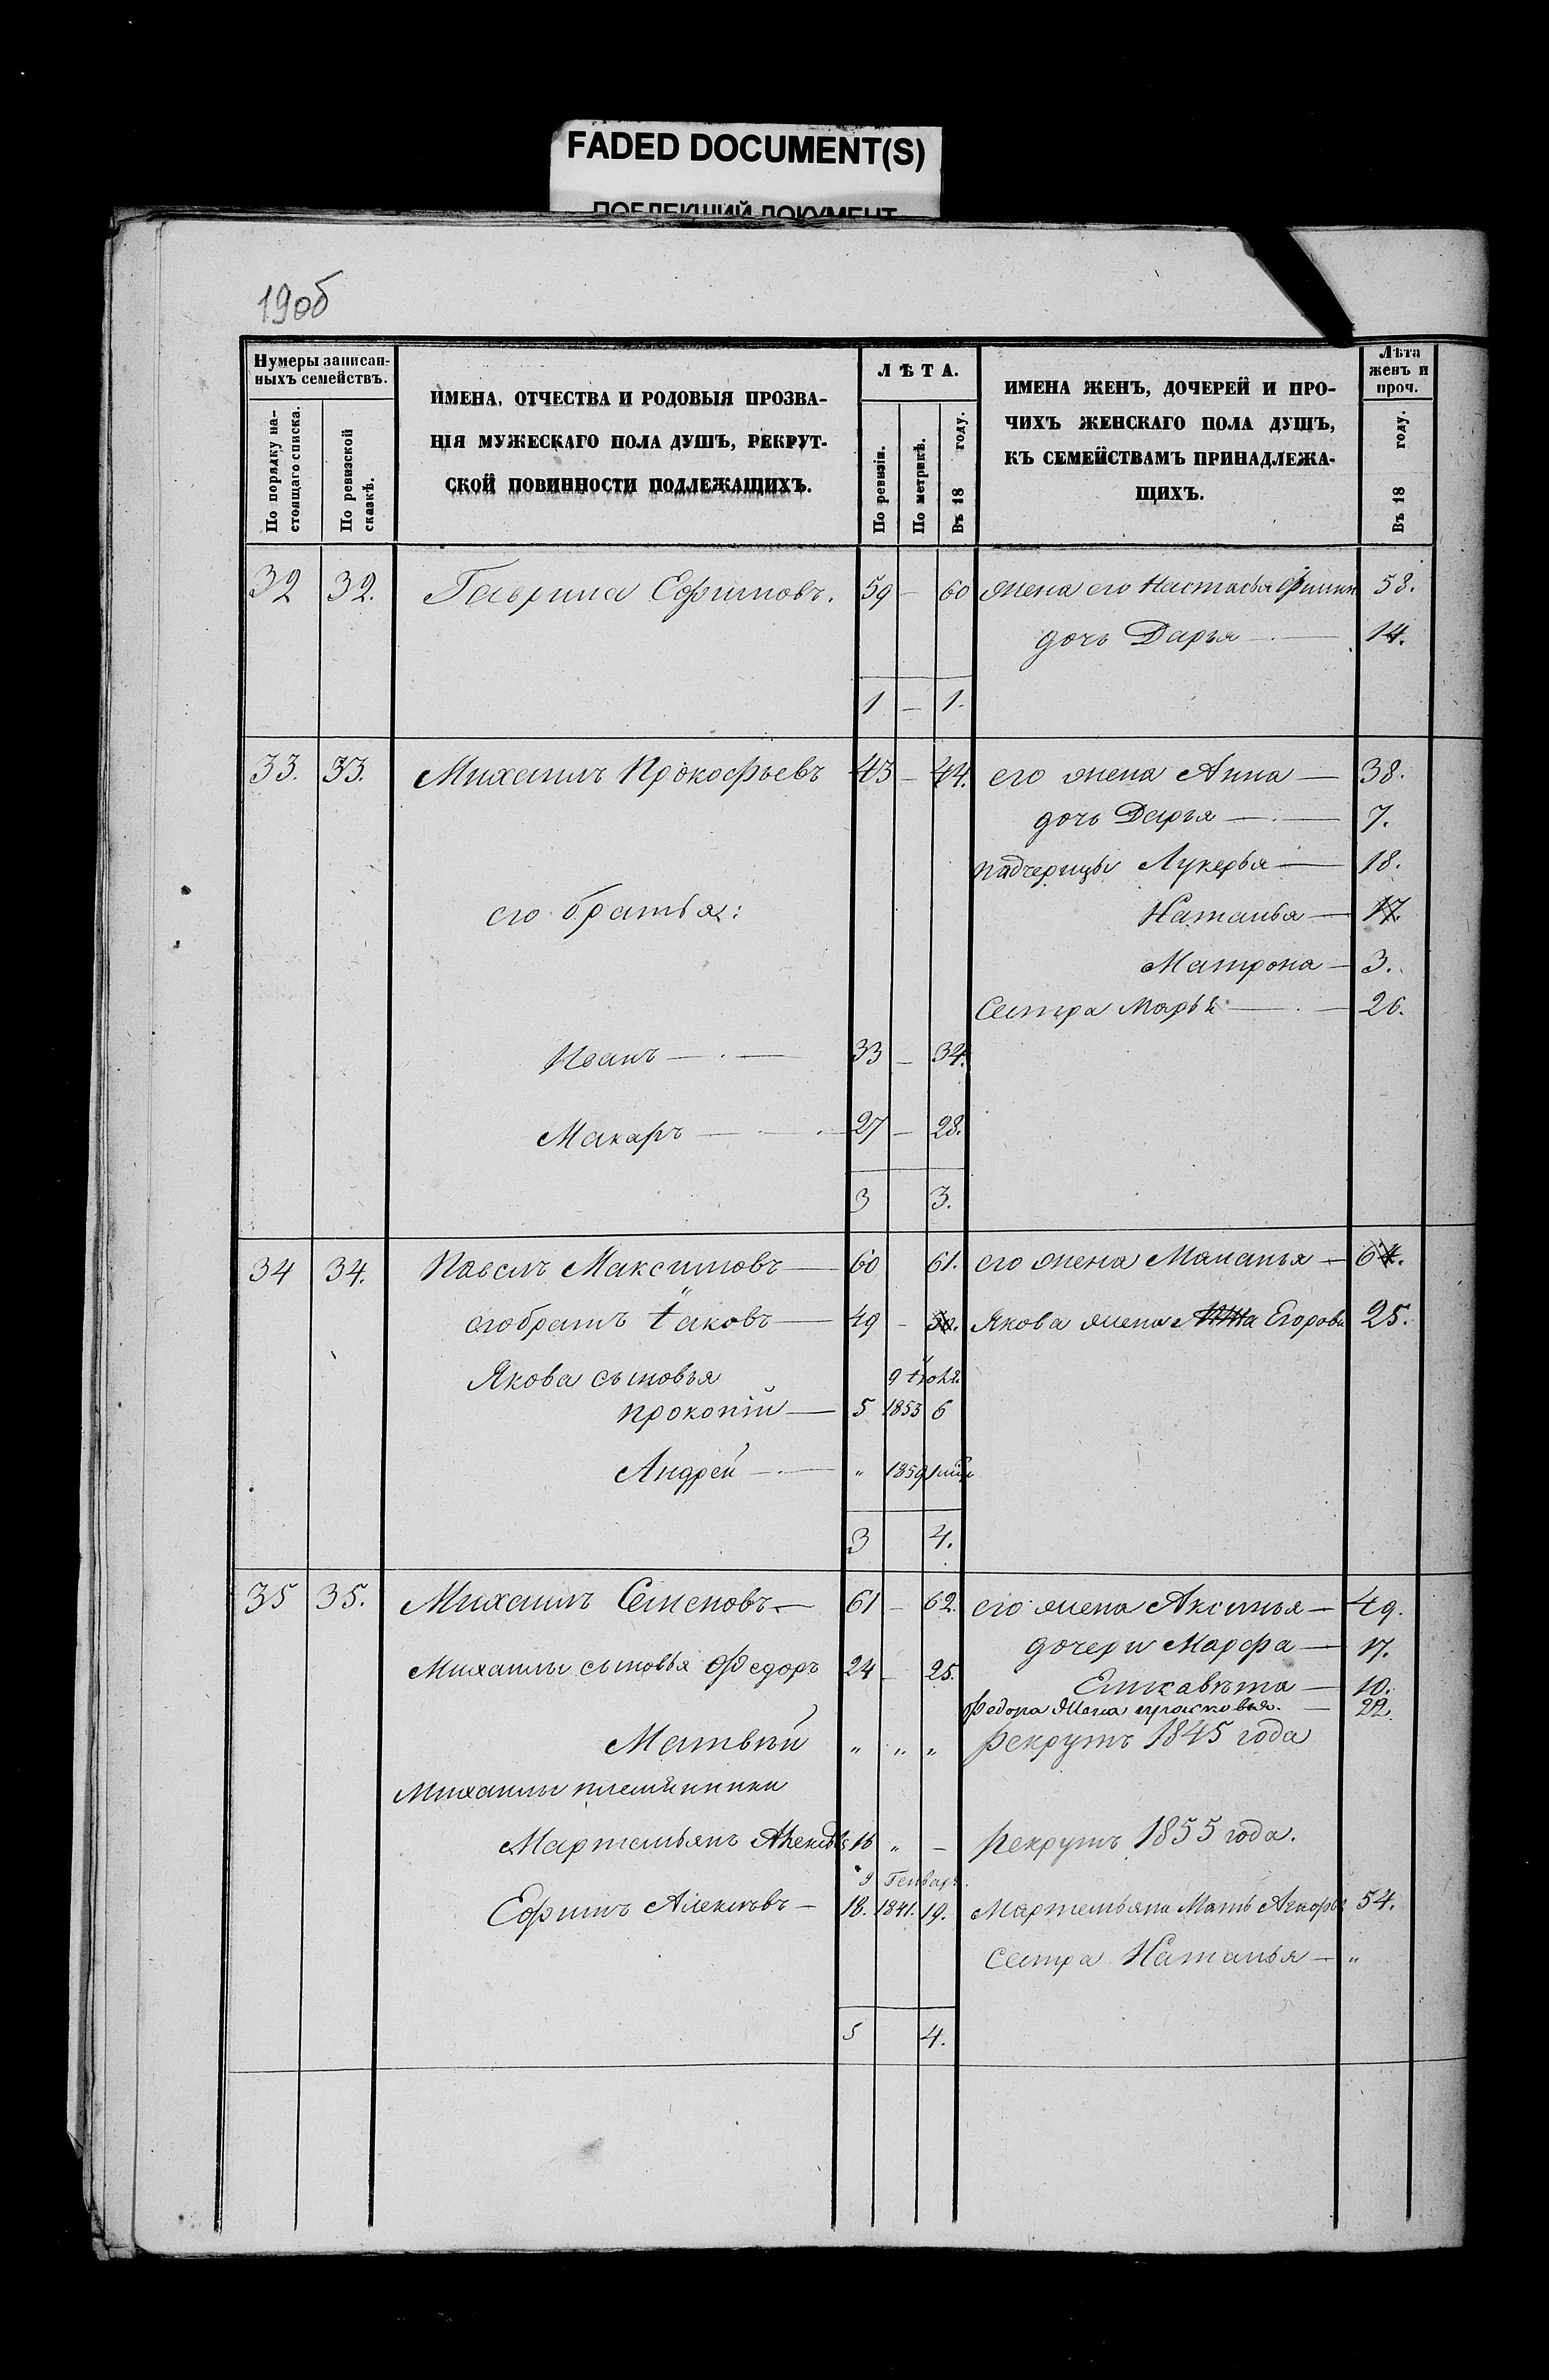 FADED DOCUMENT(S)
ПОБЛЕКШИЙ ДОКУМЕНТ
190б
Нумеры записан-
ныхъ семействъ.
По порядку на-
стоящаго списка.
По ревизской
сказкѣ.
ИМЕНА, ОТЧЕСТВА И РОДОВЫЯ ПРОЗВА-
НІЯ МУЖЕСКАГО ПОЛА ДУШЪ, РЕКРУТ-
СКОЙ ПОВИННОСТИ ПОДЛЕЖАЩИХЪ.
ЛѢТА.
По ревизіи.
По метрикѣ.
Въ 18 году.
ИМЕНА ЖЕНЪ, ДОЧЕРЕЙ И ПРО-
ЧИХЪ ЖЕНСКАГО ПОЛА ДУШЪ,
КЪ СЕМЕЙСТВАМЪ ПРИНАДЛЕЖА-
ЩИХЪ.
Лѣта
женъ и
проч.
Въ 18 году.
32 32. Гаврила Ефимовъ. 59 — 60 жена его Настасья 58.
дочь Дарья — 14.
1 — 1.
33. 33. Михаилъ Прокофьевъ 43 — 44. его жена Анна — 38.
дочь Дарья — 7.
падчерицы Лукерья — 18.
его братья: Наталья — 17.
Матрона — 3.
Сестра Марья — 26.
Иванъ — 33 — 34.
Макаръ — 27 — 28.
3 3.
34 34. Павелъ Максимовъ — 60 61. его жена Маланья —
его братъ Іаковъ — 49 — 50. Якова жена Егорова 25.
Якова сыновья 9 Іюля
Прокопій — 5 1853 6
Андрей — " 1859
3 4.
35 35. Михаилъ Семеновъ — 61 — 62. его жена Аксинья — 49.
дочери Марфа — 17.
Михаилы сыновья Федоръ 24 — 25.
Елисавѣта — 10.
Федора жена прасковья. — 22.
Матвѣй " " " рекрутъ 1845 года
Михаилы племянники
Мартемьянъ 16 " — рекрутъ 1855 года.
9 Генваря.
Ефимъ Алексѣевъ — 18. 1841. 19. Мартемьяна Мать 54.
сестра Наталья — "
5 4.